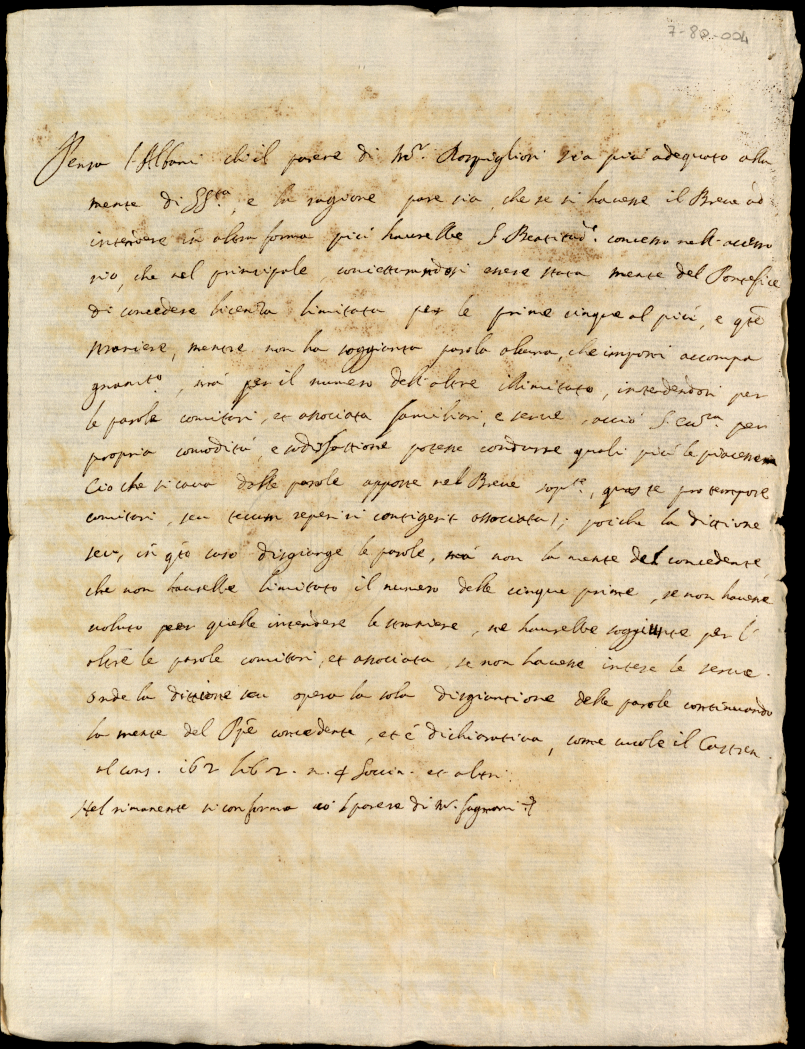 7-82-004
Pensa l'Albani che il parere di Mr. Rospigliosi sia più adequato alla
mente di SSta, e la ragione pare sia, che se si havesse il Breve ad
intendere in altra forma più haurebbe S. Beatitude. concesso nell'accesso
rio, che nel principale, conietturandosi essere stata mente del Pontefice
di concedere licenza limitata per le prime cinque al più, e qte
straniere, mentre non ha soggiunta parola alcuna, che importi accompa
gnamto, mà per il numero dell'altre illimitato, intendendosi per
le parole comitari, et associata familiari, e serve, acciò S. Ecca. per
propria comodità, e sodisfattione potesse condurre quali più le piacesse
Ciò che si cava dalle parole apposte nel Breve sopte., quas te pro tempore
comitari, seu tecum reperiri contigerit associata /; poiche la dittione
seu, in qto caso disgiunge le parole, mà non la mente del concedente,
che non haurebbe limitato il numero delle cinque prime, se non havesse
voluto per quelle intendere le straniere, ne haurebbe soggiunte per l'
altre le parole comitari, et associata, se non havesse intese le serve.
Onde la dittione seu opera la sola disgiuntione delle parole continuando
la mente del Ppe concedente, et è dichiarativa, come vuole il Castren.
al cons. 162 lib. 2. n. 4 Soccin. et altri.
Nel rimanente si conforma co'l parere di Mr. Fagnani.